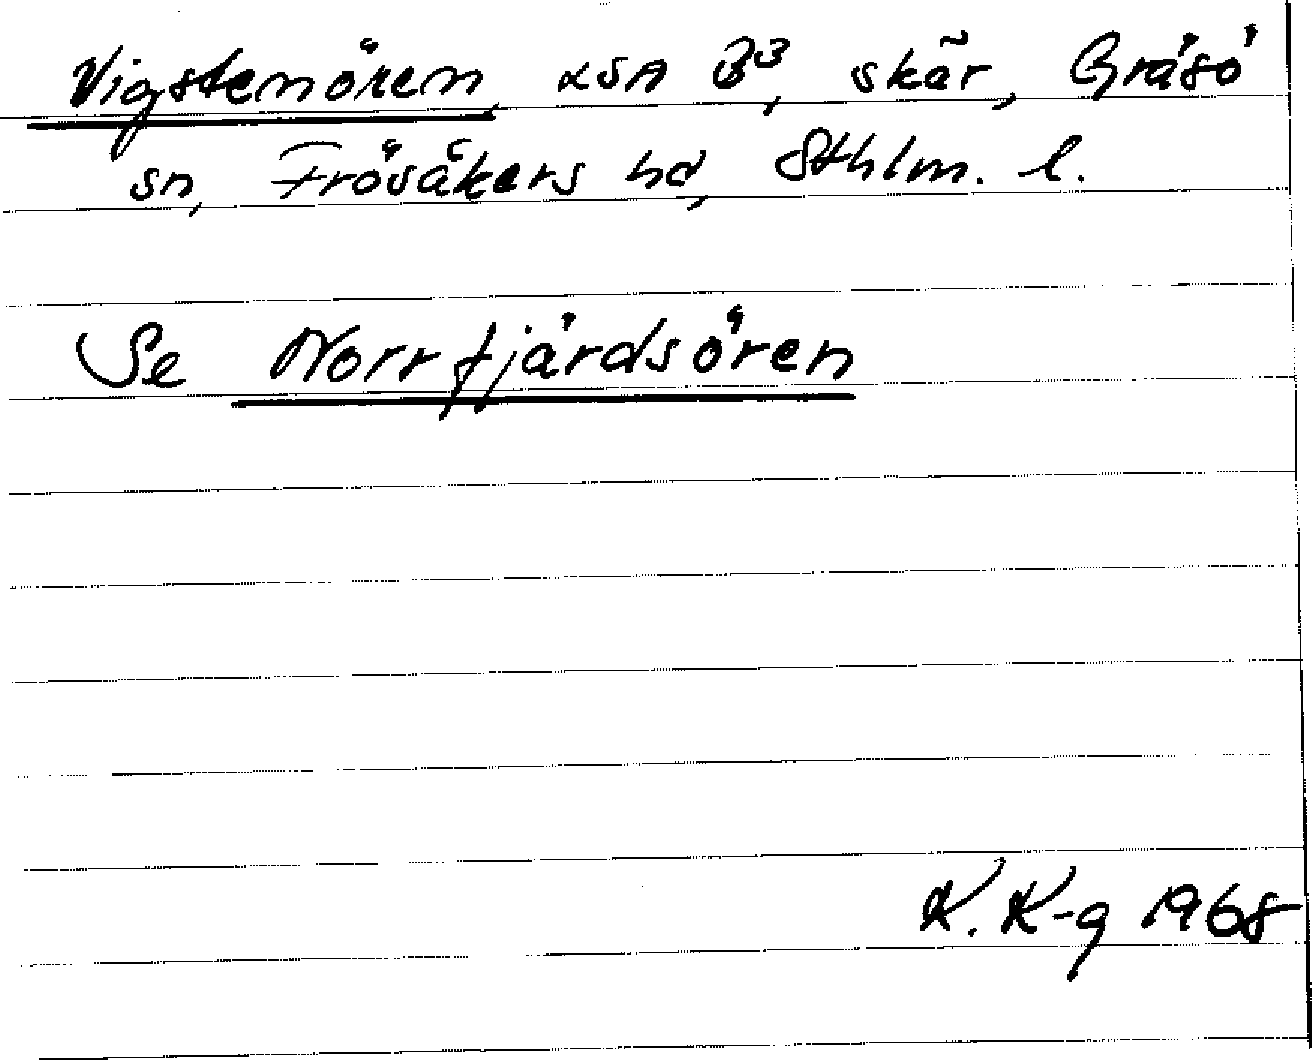 Vigstenören, LSA B³, skär, Gräsö
sn, Frösåkers hd, Sthlm. l.
Se Norrfjärdsören
K. K-g 1968